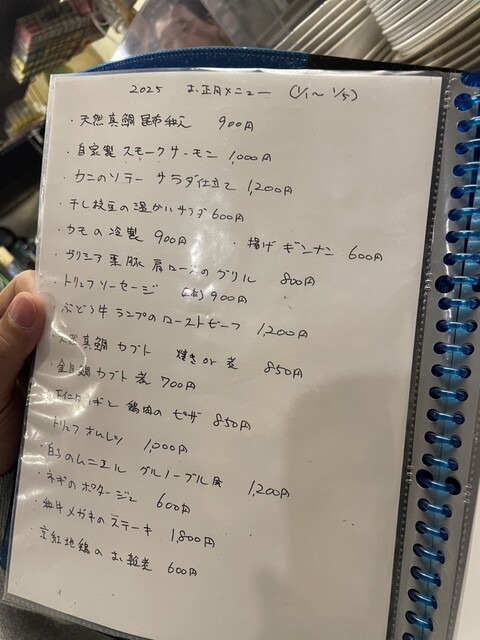 2025 お正月メニュー (1/1〜1/5)
・天然真鯛昆布和え 900円
・自家製スモークサーモン 1,000円
・カニのソテー サラダ仕立て 1,200円
・干し枝豆の温かいサラダ 600円
・カモの冷製 900円 ・揚げギンナン 600円
・ガリシア栗豚 肩ロースのグリル 800円
・トリュフソーセージ 900円
・ぶどう牛ランプのローストビーフ 1,200円
・天然真鯛カブト 焼き or 煮 850円
・金目鯛カブト煮 700円
と鶏肉のピザ 850円
・トリュフオムレツ 1,000円
・白子のムニエル グルノーブル風 1,200円
・ネギのポタージュ 600円
・和牛メガネのステーキ 1,800円
・京紅地鶏のお雑煮 600円